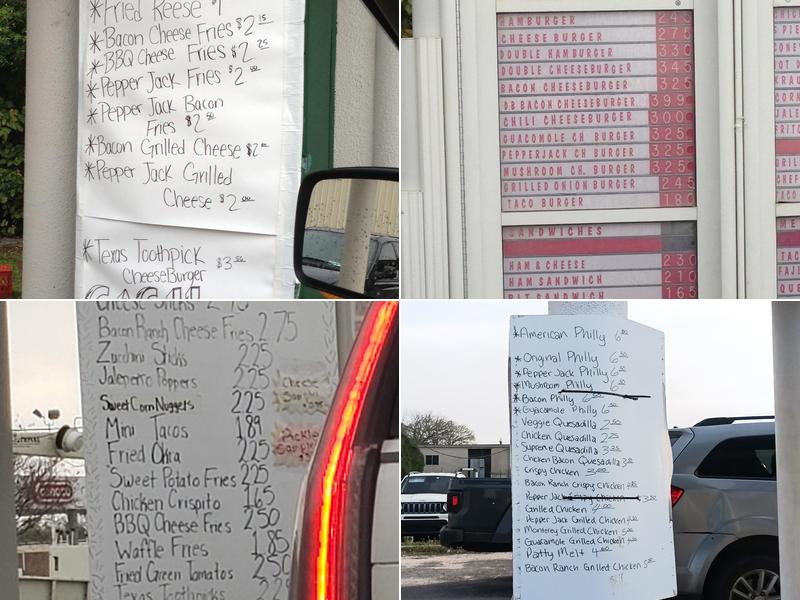 *Fried Reese $1
*Bacon Cheese Fries $2.15
*BBQ Cheese Fries $2.25
*Pepper Jack Fries $2.00
*Pepper Jack Bacon
Fries $2
*Bacon Grilled Cheese $2
*Pepper Jack Grilled
Cheese $2.00
*Texas Toothpick
CheeseBurger $3.50
HAMBURGER 245
CHEESE BURGER 275
DOUBLE HAMBURGER 330
DOUBLE CHEESEBURGER 345
BACON CHEESEBURGER 325
DB BACON CHEESEBURGER 399
CHILI CHEESEBURGER 300
GUACOMOLE CH BURGER 325
PEPPERJACK CH BURGER 325
MUSHROOM CH. BURGER 325
GRILLED ONION BURGER 245
TACO BURGER 180
SANDWICHES
HAM & CHEESE 230
HAM SANDWICH 210
BLT SANDWICH 165
Cheese Sticks 2
Bacon Ranch Cheese Fries 2.75
Zucchini Sticks 225
Jalepeno Poppers 225
Sweet Corn Nuggets 225
Mini Tacos 1.89
Fried Okra 225
Sweet Potato Fries 225
Chicken Crispito 1.65
BBQ Cheese Fries 2.50
Waffle Fries 1.85
Fried Green Tomatos 250
Texas Toothpicks 225
Cheese
Pickle
conoco
*American Philly 6.50
*Original Philly 6.50
*Pepper Jack Philly 6.50
*Mushroom Philly 6.50
*Bacon Philly 6
*Guacamole Philly 6.50
Veggie Quesadilla 2.50
Chicken Quesadilla 2.75
Supreme Quesadilla 3.25
Chicken Bacon Quesadilla 3
Crispy Chicken
Bacon Ranch Crispy Chicken
Pepper Jack Crispy Chicken
Grilled Chicken 4.00
Pepper Jack Grilled Chicken
Monterey Grilled Chicken
Guacamole Grilled Chicken
Patty Melt 4.00
Bacon Ranch Grilled Chicken 5